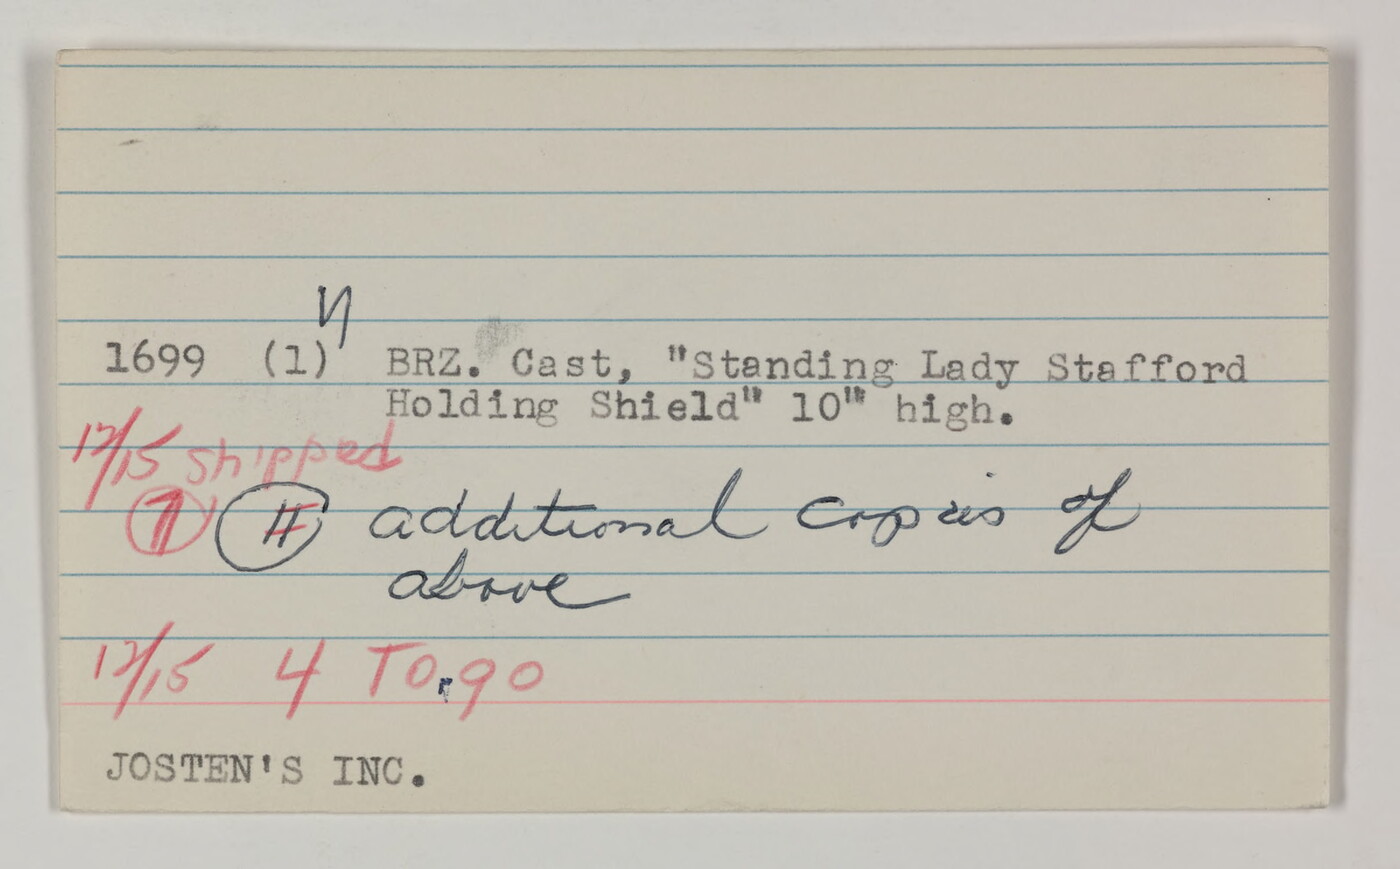 1699 (1) BRZ. Cast, "Standing Lady Stafford
Holding Shield" 10" high.
12/15 shipped
additional copies of
above
12/15 4 TO.go
JOSTEN'S INC.